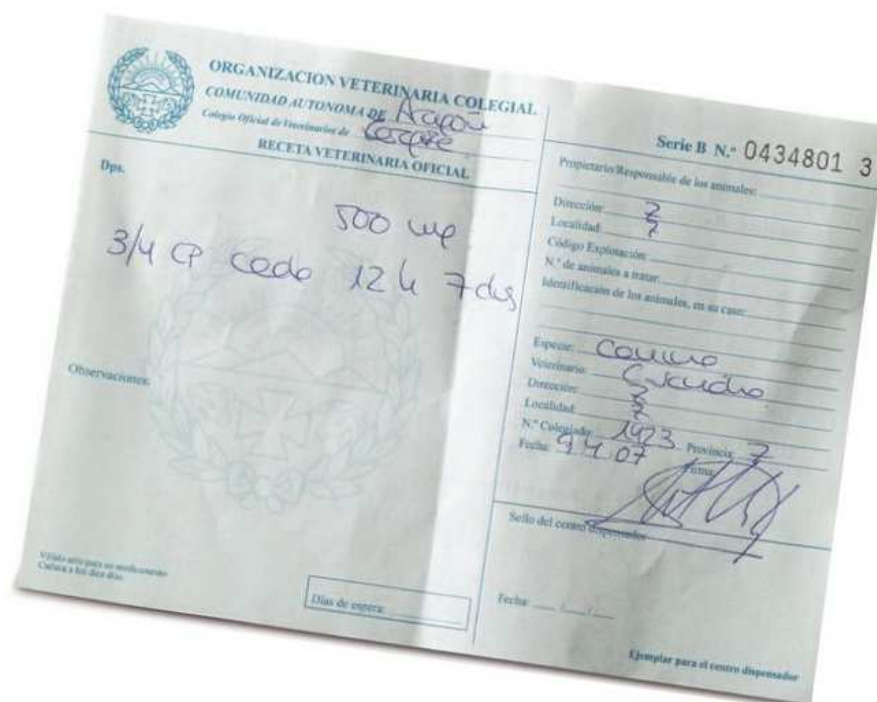 ORGANIZACION VETERINARIA COLEGIAL
COMUNIDAD AUTONOMA DE Aragón
Colegio Oficial de Veterinarios de
RECETA VETERINARIA OFICIAL
Dps.
500 mg
3/4 cp cada 12 h 7 días
Observaciones:
Válido sólo para un medicamento
Caduca a los diez días
Días de espera:
Serie B N.º 0434801 3
Propietario/Responsable de los animales:
Dirección: Z
Localidad: Z
Código Explotación:
N.º de animales a tratar:
Identificación de los animales, en su caso:
Especie: Canina
Veterinario:
Dirección: Z
Localidad: Z
N.º Colegiado: 1423 Provincia: Z
Fecha: 9 4 07 Firma:
Sello del centro dispensador
Fecha:
Ejemplar para el centro dispensador